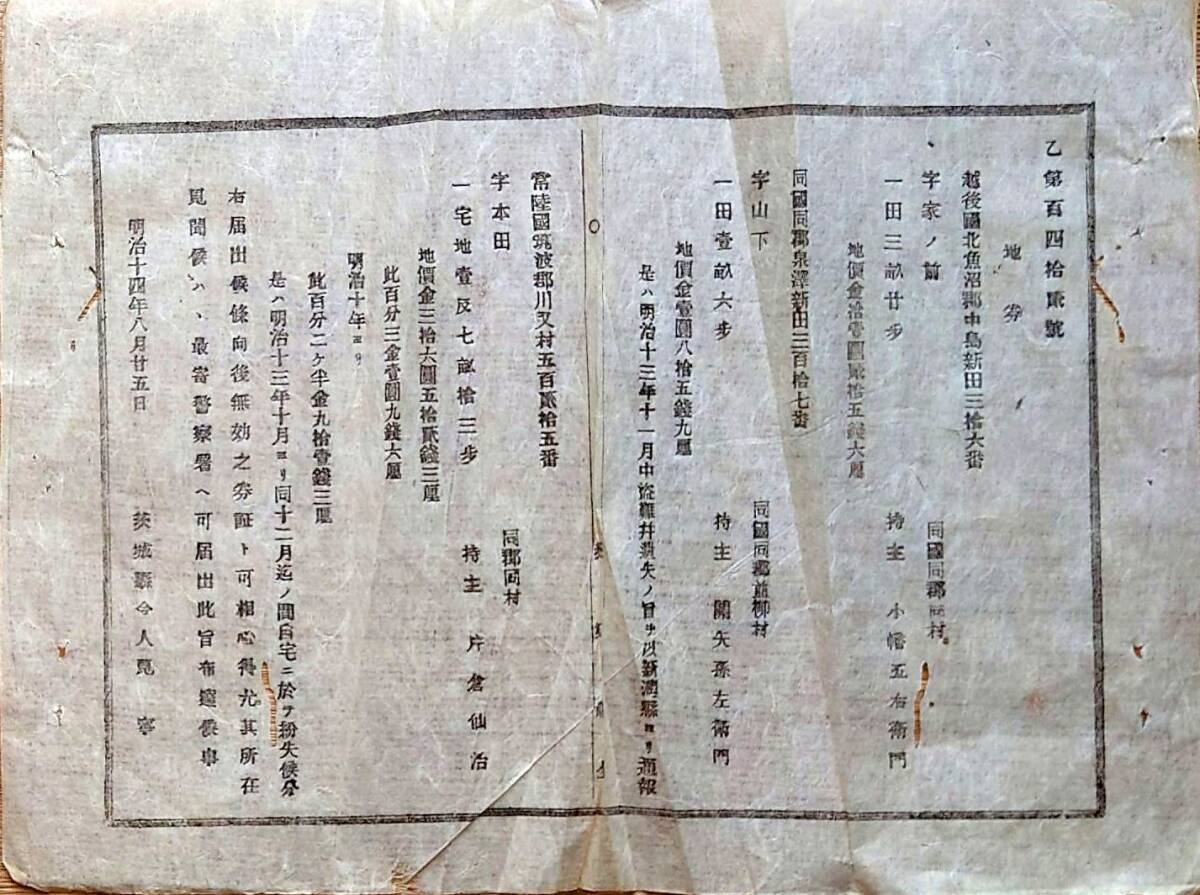 乙第百四拾貳號
地券
越後國北魚沼郡中島新田三拾六番
字家ノ前
同國同郡同村
一田三畝廿步
持主 小幡五右衛門
地價金拾壹圓貳拾五錢六厘
同國同郡泉澤新田三百拾七番
字山下
同國同郡並柳村
一田壹畝六步
持主 關矢孫左衛門
地價金壹圓八拾五錢九厘
是ハ明治十三年十一月中盜難并紛失ノ旨ヲ以新潟縣ヨリ通報
常陸國筑波郡川又村五百貳拾五番
字本田
同郡同村
一宅地壹反七畝拾三步
持主 片倉仙治
地價金三拾六圓五拾貳錢三厘
此百分三金壹圓九錢六厘
明治十年ヨリ
此百分二ケ半金九拾壹錢三厘
是ハ明治十三年十月ヨリ同十二月迄ノ間自宅ニ於テ紛失候分
右届出候條向後無効之券証ト可相心得尤其所在
見聞候ハヽ最寄警察署ヘ可届出此旨布達候事
明治十四年八月廿五日
茨城縣令人見 寧